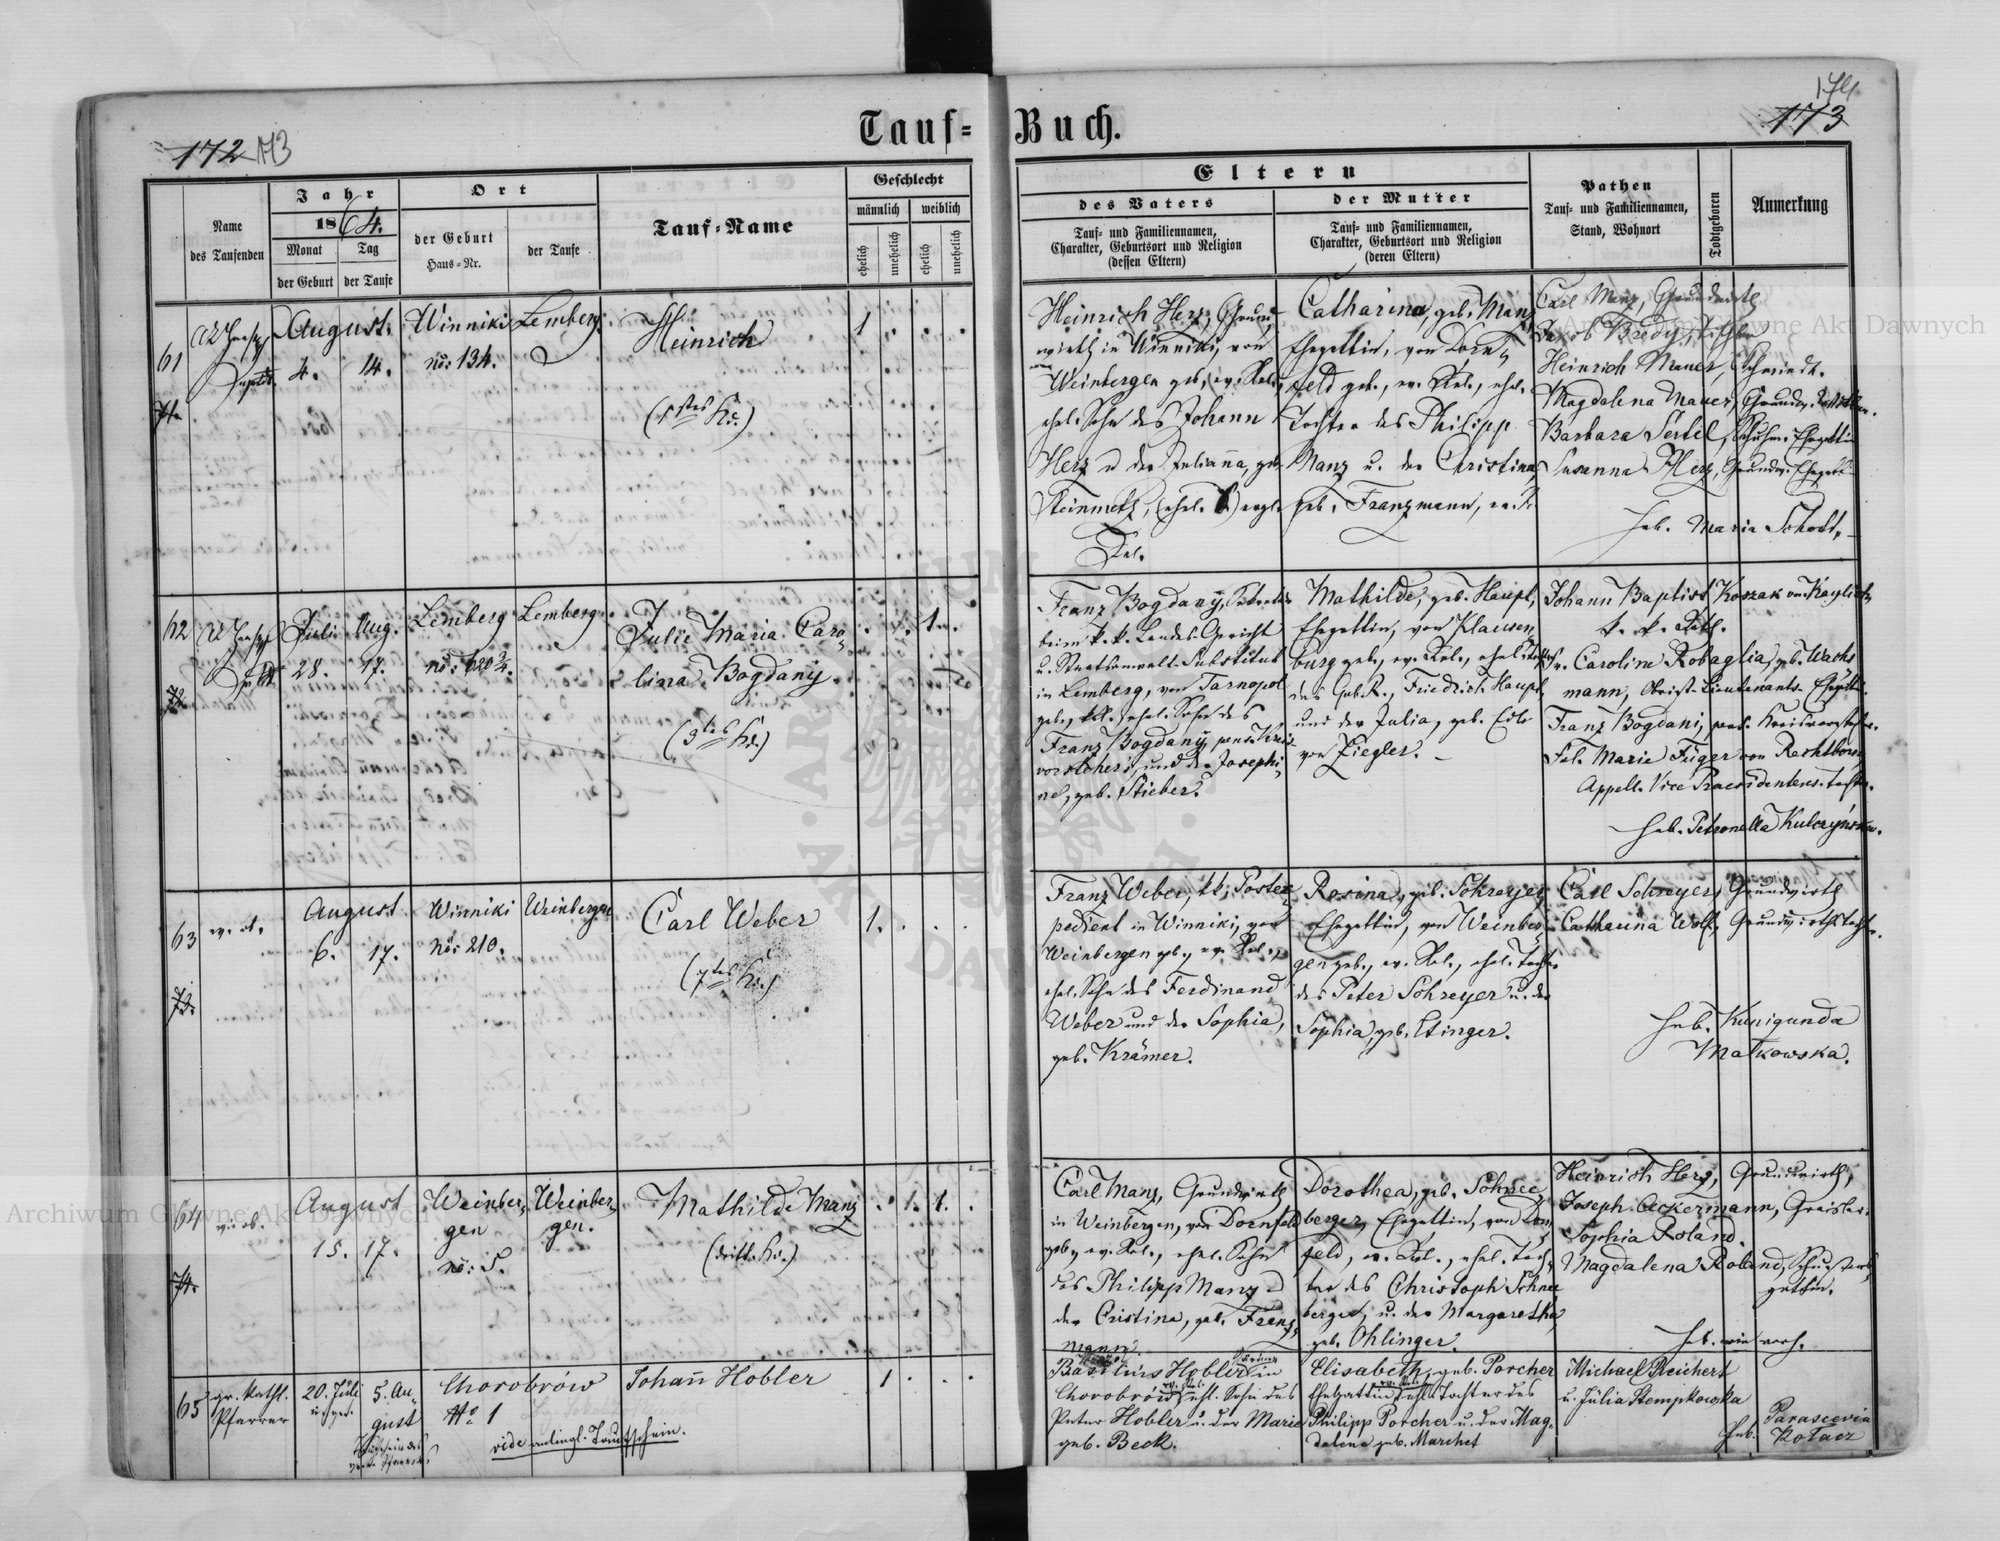 Tauf-Buch.
172 173
174
173
Name
des Taufenden
Jahr
1864.
Monat
der Geburt
Tag
der Taufe
Ort
der Geburt
Haus-Nr.
der Taufe
Tauf-Name
Geschlecht
männlich
weiblich
ehelich
unehelich
ehelich
unehelich
Eltern
des Vaters
Tauf- und Familiennamen,
Charakter, Geburtsort und Religion
(dessen Eltern)
der Mutter
Tauf- und Familiennamen,
Charakter, Geburtsort und Religion
(deren Eltern)
Pathen
Tauf- und Familiennamen,
Stand, Wohnort
Todtgeboren
Anmerkung
61
71.
August.
4. 14.
Winniki
no: 134.
Lemberg
Heinrich
1
Heinrich Herz, Grund
wirth in Winniki, von
Weinbergen geb., ev. Rel.,
ehel. Sohn des Johann
Herz u der Julianna, geb.
Steinmetz,
Rel.
Catharina, geb. Manz
Ehegattin, von Dorn
feld geb., ev. Rel., ehel.
Tochter des Philipp
Manz u. der Christina,
geb. Franzmann, ev. R
Carl Manz, Grundwirth
Heinrich Mauer, Schmiedt.
Magdalena Mauer,
Barbara Seibel, Schuhm. Ehegattin
Susanna Herz, Grundw. Ehegatt
Heb. Maria Schodt.
62
72
Juli Aug.
28. 17.
Lemberg
Lemberg.
Julie Maria Caro
lina Bogdany.
(3tes Kd.)
1.
Franz Bogdany,
beim k. k. Landes Gericht
u. Staatsanwalt-Substitut
in Lemberg, von Tarnopol
geb., ehel. Sohn des
Franz Bogdany, pens. Kreis
vorstehers, und der Josephi
ne, geb. Stieber.
Mathilde, geb. Haupt,
Ehegattin, von Klausen
burg geb., ev. Rel., ehel. Tochter
des Geb. R., Friedrich Haupt
und der Julia, geb. Edle
von Ziegler.
Johann Baptist Koszak von
k. k. Rath.
Caroline Robaglia, geb. Wachs
mann, Obrist-Lieutenants-Ehegattin.
Franz Bogdani, pens. Kreisvorsteher.
Frl. Marie Füger von Rechtborn
Appell. Vice Praesidentens-tochter.
Heb. Petronella Kulczynska.
63
73.
August
6. 17.
Winniki
No: 210.
Weinbergen
Carl Weber
(7tes Kd.)
1.
Franz Weber, kk. Postex
pedient in Winniki, von
Weinbergen geb., ev. Rel.,
ehel. Sohn des Ferdinand
Weber und der Sophia,
geb. Krämer.
Rosina, geb. Schreyer,
Ehegattin, von Weinber
gen geb., ev. Rel., ehel. Tochter
des Peter Schreyer u. der
Sophia, geb. Etinger.
Carl Schreyer, Grundwirth
Catharina Wolf, Grundwirthstochter.
Heb. Kunigunda
Matkowska.
64
74.
wie ob.
August
15. 17.
Weinber
gen
no: 5.
Weinber
gen.
Mathilde Manz
(dritt. Kd.)
1.
Carl Manz, Grundwirth
in Weinbergen, von Dornfeld
geb., ev. Rel., ehel. Sohn
des Philipp Manz u
der Cristina, geb. Franz
mann.
Dorothea, geb. Schnee
berger, Ehegattin, von Dorn
feld, ev. Rel., ehel. Toch
ter des Christoph Schnee
berger, u. der Margaretha,
geb. Ohlinger.
Heinrich Herz, Grundwirth,
Joseph Ackermann, Greisler.
Sophia Roland.
Magdalena Roland, Schusters
gattin.
Heb. wie vorh.
65
gr. kathl.
Pfarrer
20. Juli
5. Au
gust
Chorobrów
No 1
vide anlingl. Taufschein.
Johann Hobler
1
Basilius Hobler in
Chorobrów, ehl. Sohn des
Peter Hobler u. der Marie
geb. Beck.
Elisabeth, geb. Porcher
Ehegattin, ehl. Tochter des
Philipp Porcher u. der Mag
dalena geb. Marchet
Michael Reichert
u. Julia Stempkowska
Heb. Parascevia
Kolacz
Archiwum Główne Akt Dawnych
Archiwum Główne Akt Dawnych